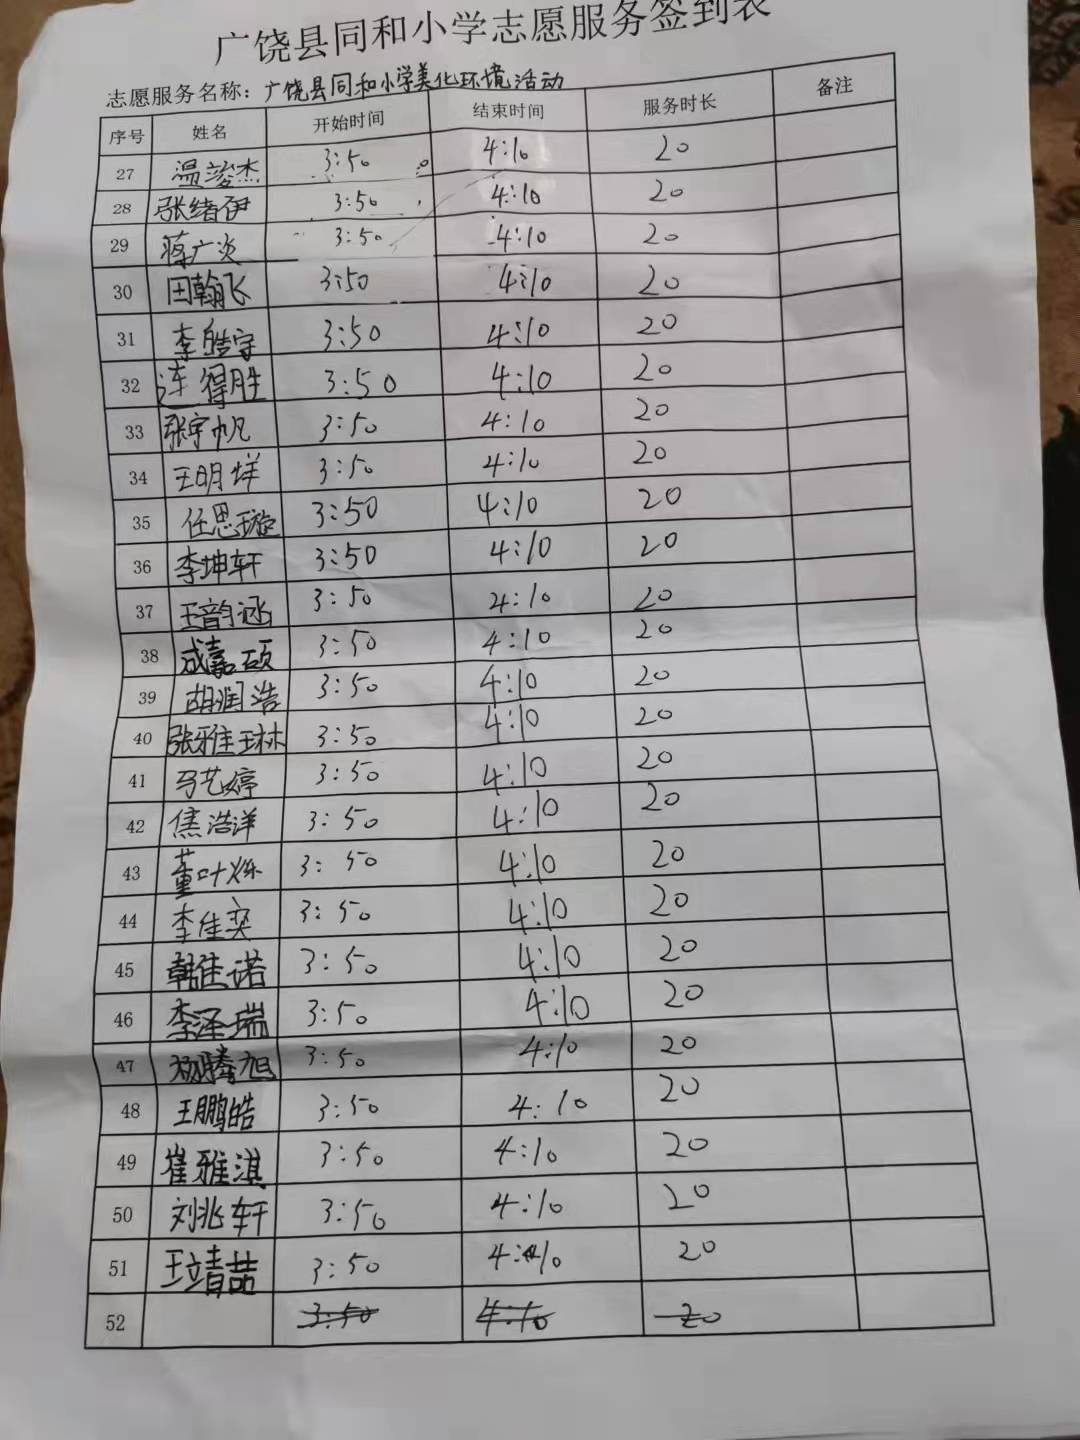 广饶县同和小学志愿服务签到表
志愿服务名称：广饶县同和小学美化环境活动
序号 姓名 开始时间 结束时间 服务时长 备注
27 温竣杰 3:50 4:10 20
28 张绪伊 3:50 4:10 20
29 蒋广炎 3:50 4:10 20
30 田翰飞 3:50 4:10 20
31 李皓宇 3:50 4:10 20
32 连得胜 3:50 4:10 20
33 张宇帆 3:50 4:10 20
34 王明烊 3:50 4:10 20
35 任思璇 3:50 4:10 20
36 李坤轩 3:50 4:10 20
37 王韵涵 3:50 4:10 20
38 成嘉硕 3:50 4:10 20
39 胡润浩 3:50 4:10 20
40 张雅琳 3:50 4:10 20
41 马艺婷 3:50 4:10 20
42 焦浩洋 3:50 4:10 20
43 董叶烁 3:50 4:10 20
44 李佳奕 3:50 4:10 20
45 韩佳诺 3:50 4:10 20
46 李泽瑞 3:50 4:10 20
47 杨腾旭 3:50 4:10 20
48 王鹏皓 3:50 4:10 20
49 崔雅淇 3:50 4:10 20
50 刘兆轩 3:50 4:10 20
51 王靖喆 3:50 4:10 20
52 3:50 4:10 20